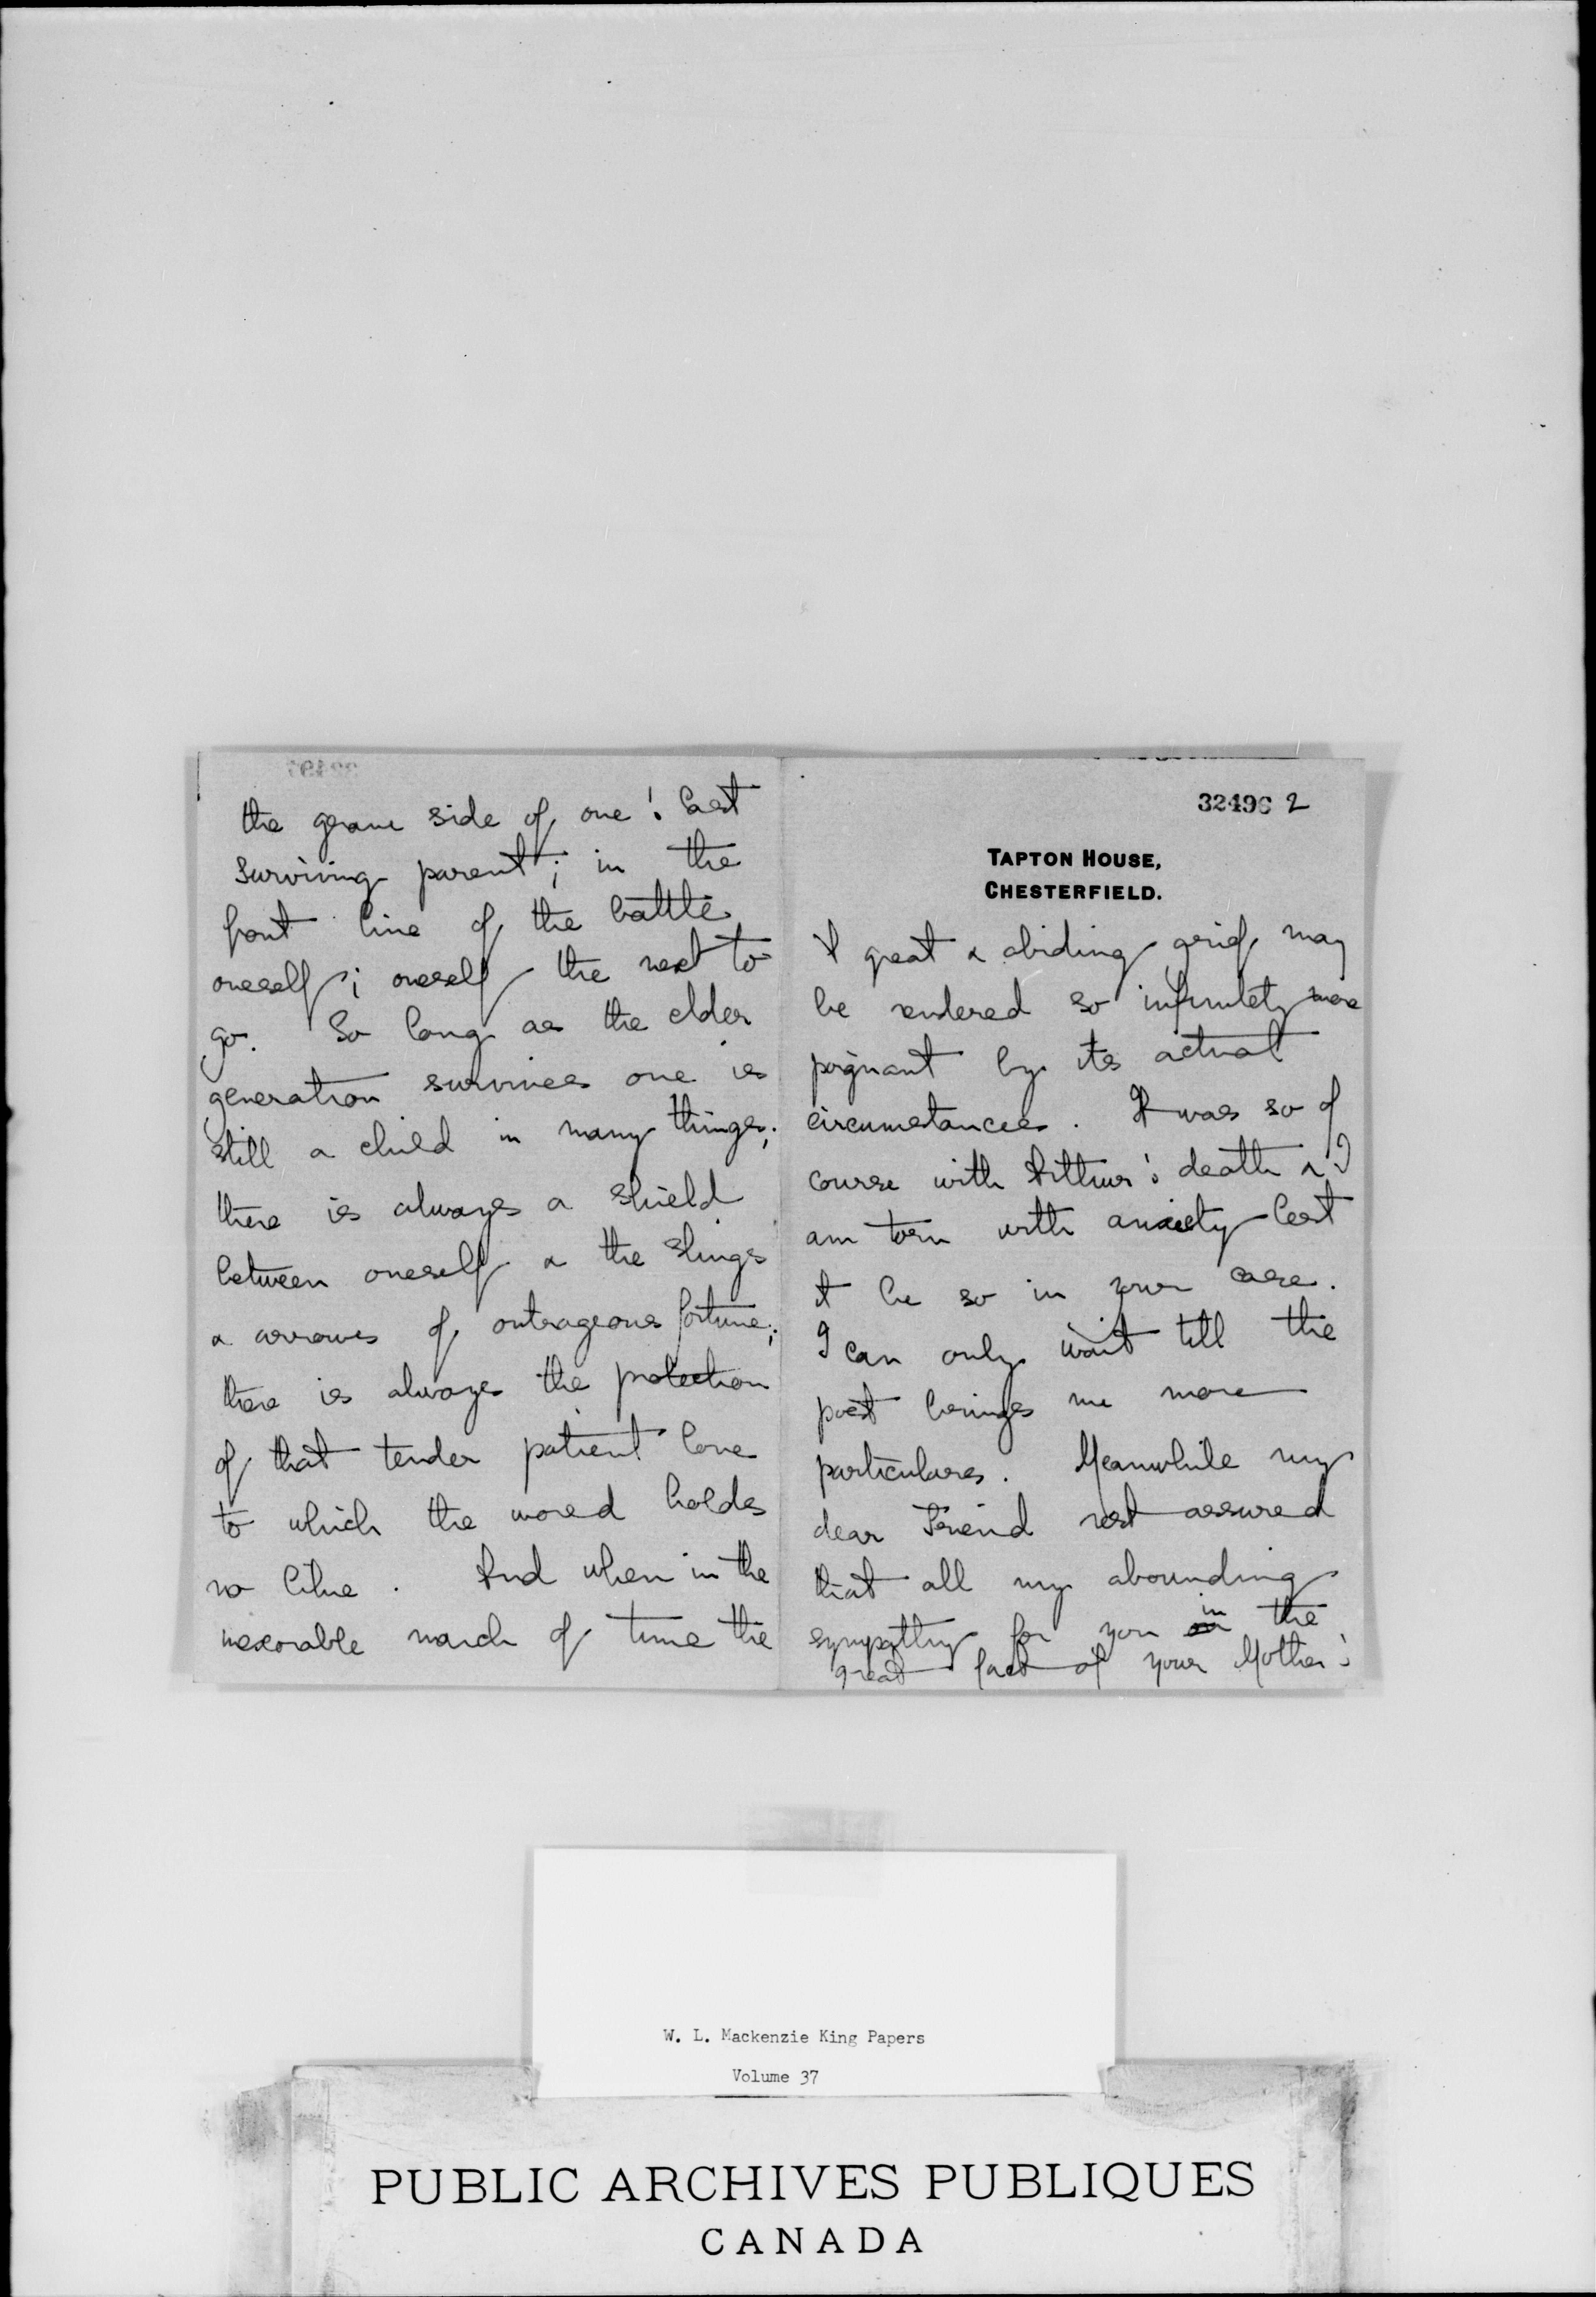 the grave side of one's last
surviving parent; in the
front line of the battle
oneself; oneself the next to
go. So long as the elder
generation survives one is
still a child in many things;
there is always a shield
between oneself & the slings
& arrows of outrageous fortune;
there is always the protection
of that tender patient love
to which the world holds
no like. And when in the
inexorable march of time the
32496 2
TAPTON HOUSE,
CHESTERFIELD.
A great & abiding grief may
be rendered so infinitely more
poignant by its actual
circumstances. It was so of
course with Arthur's death & I
am torn with anxiety lest
it be so in your case.
I can only wait till the
post brings me more
particulars. Meanwhile my
dear Friend rest assured
that all my abounding
sympathy for you in the
great fact of your Mother's
W. L. Mackenzie King Papers
Volume 37
PUBLIC ARCHIVES PUBLIQUES
CANADA